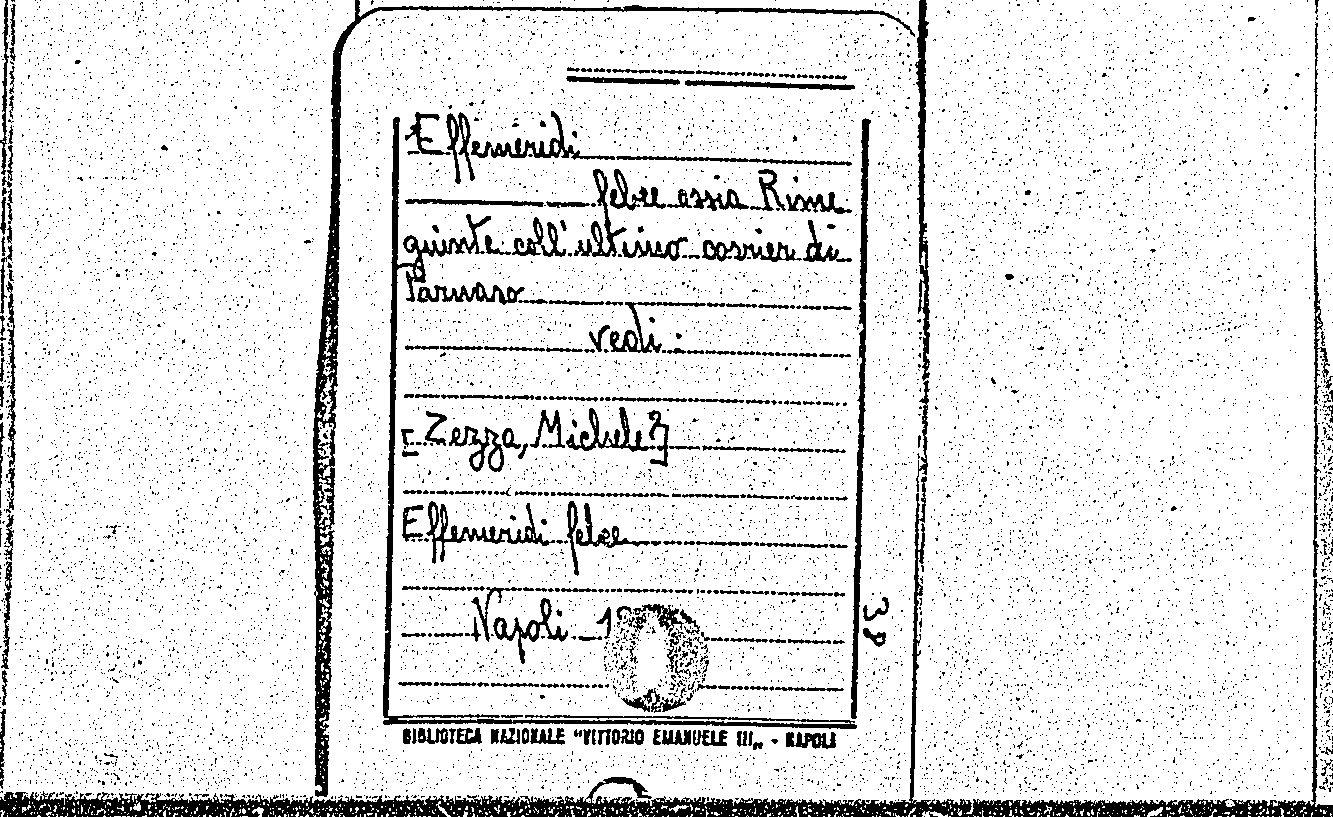 Effemeridi
felvee ossia Rime
giunte coll'ultimo corrier di
Parnaso
vedi:
[Zezza, Michele]
Effemeridi
Napoli
38
BIBLIOTECA NAZIONALE "VITTORIO EMANUELE III„ - NAPOLI